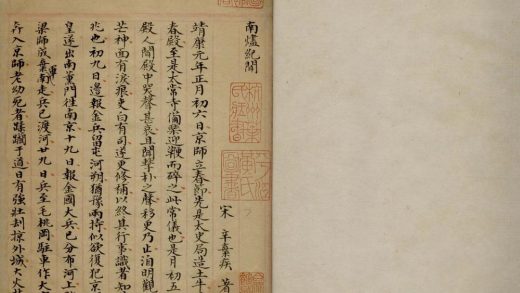 南燼紀聞
宋 辛棄疾 著
靖康元年正月初六日京師立春節先是太史局造土牛
春殿至是太常寺備樂迎鞭而碎之此常儀也是月初五
殿人聞殿中哭聲甚哀且聞擊扑之聲移更乃止洎明觀
芒神面有淚痕吏白有司遂更修補以終其行事識者知
兆也初九日邊報金兵留屯河朔猶豫兩持似欲復犯京
皇遂出南薰門往南京十九日報金國大兵已分布河上
梁師成棄軍南走兵已渡河廿九日兵至毛桃岡駐車作大
入京師老幼死者蹂躪于道日有強壯刦掠外城大火